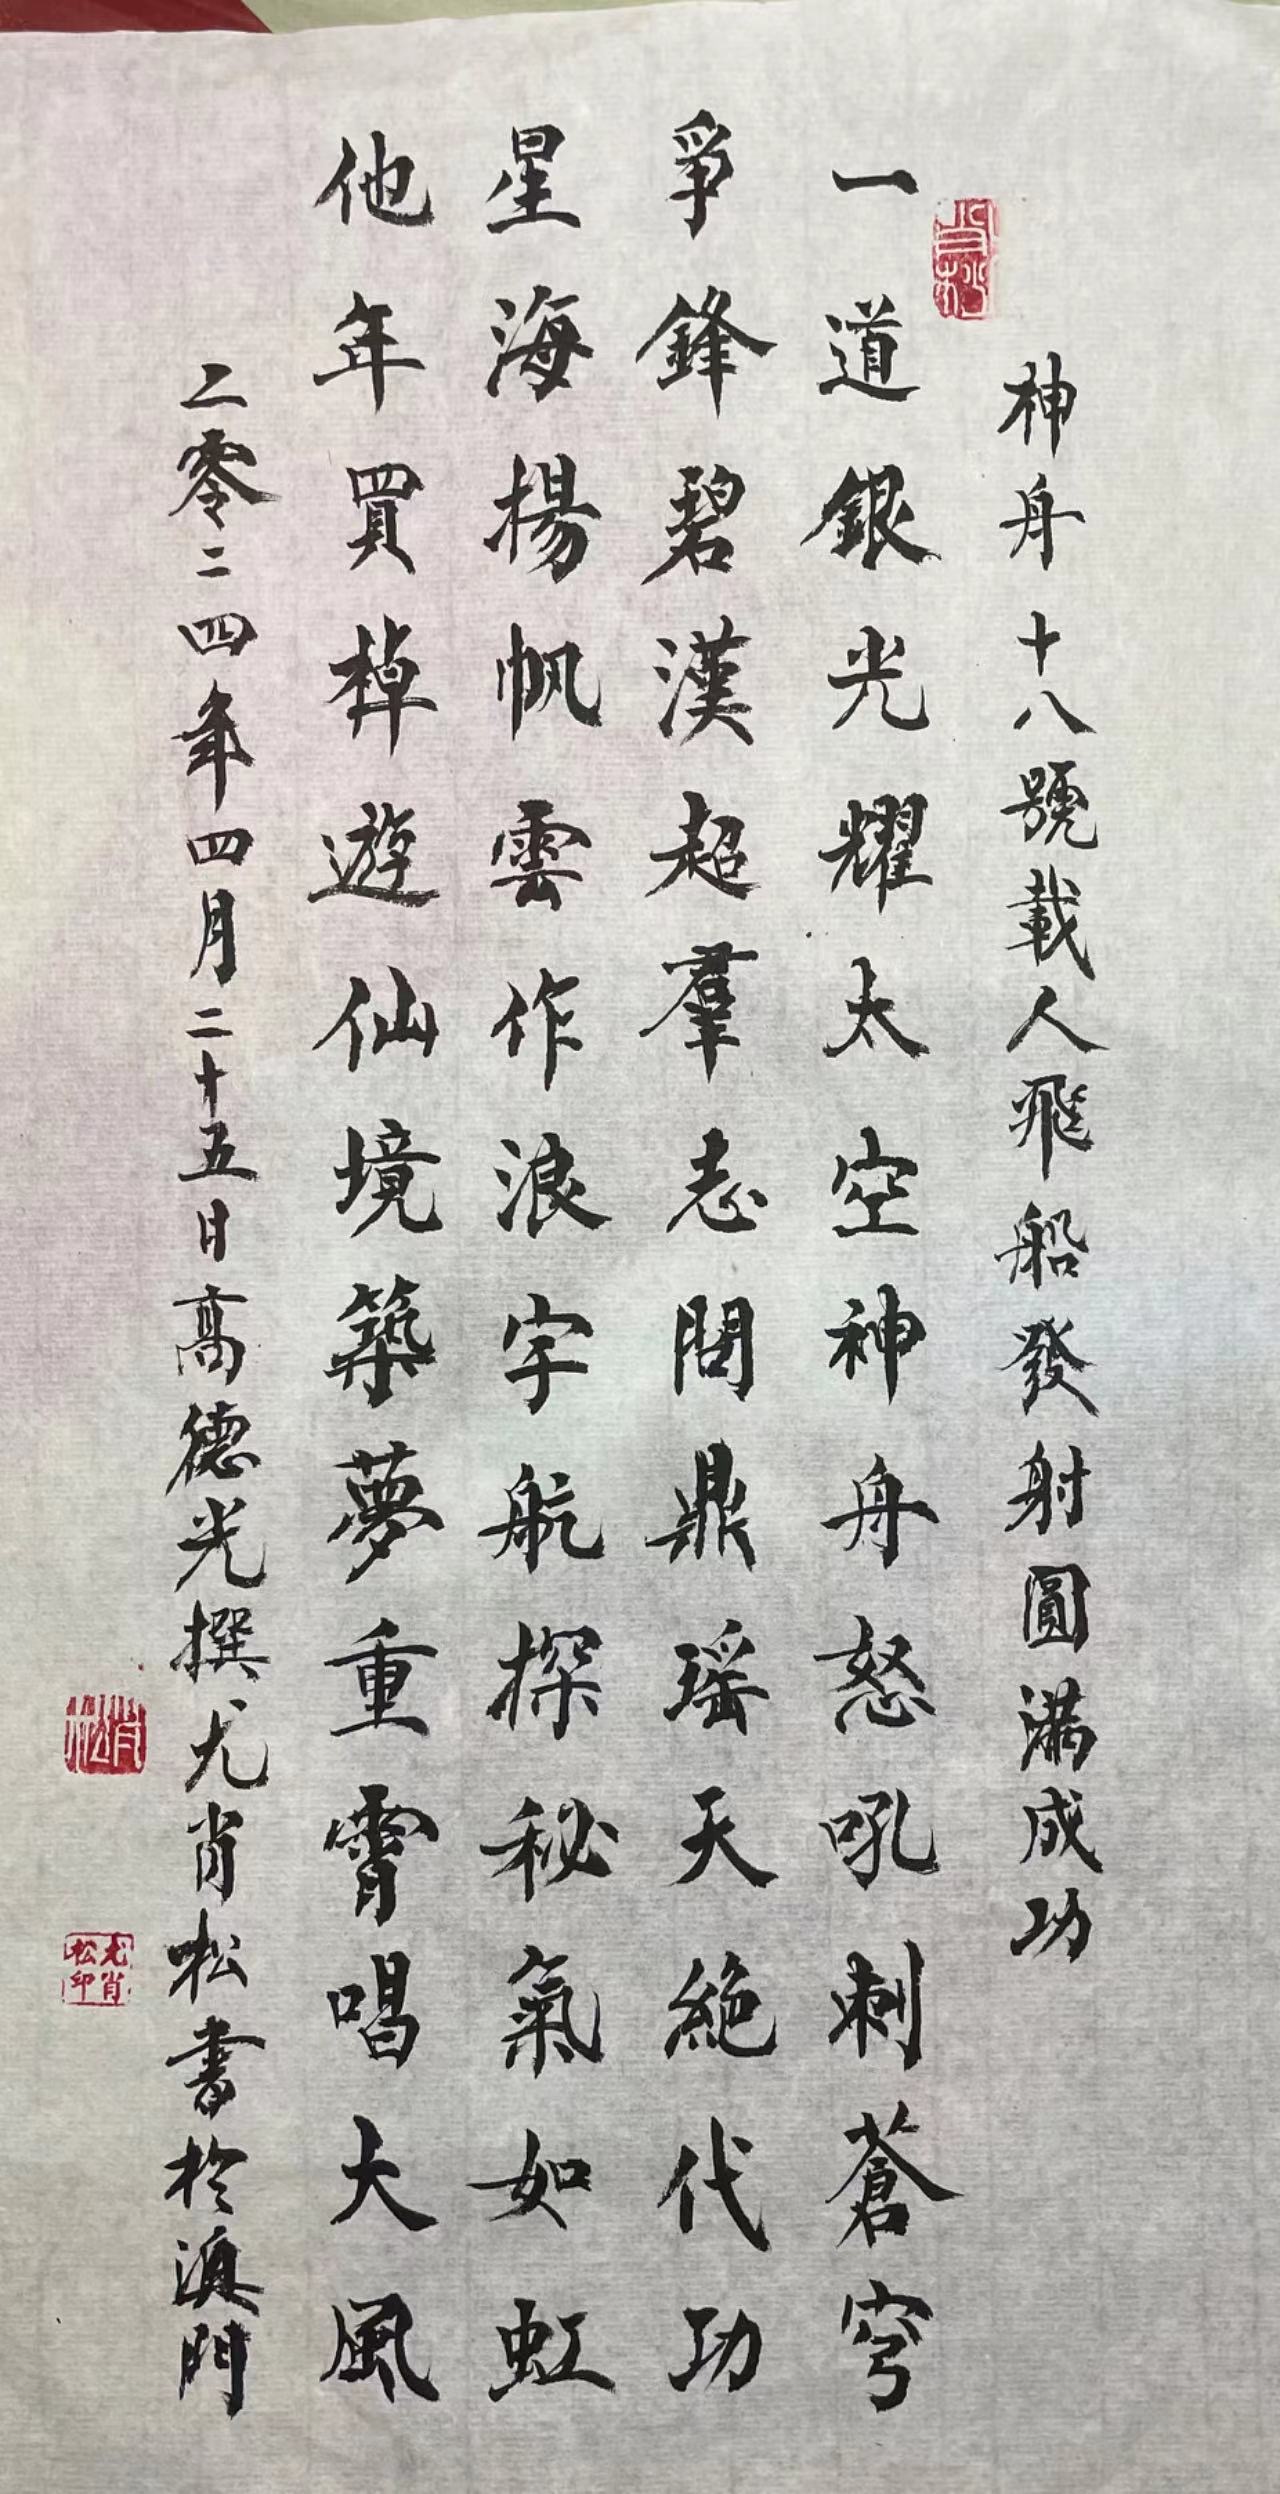 神舟十八號載人飛船發射圓滿成功
一道銀光耀太空神舟怒吼刺蒼穹
爭鋒碧漢超羣志問鼎瑶天絶代功
星海揚帆雲作浪宇航探秘氣如虹
他年買棹遊仙境築夢重霄唱大風
二零二四年四月二十五日高德光撰尤肖松書於澳門
肖松
肖松
尤肖松印